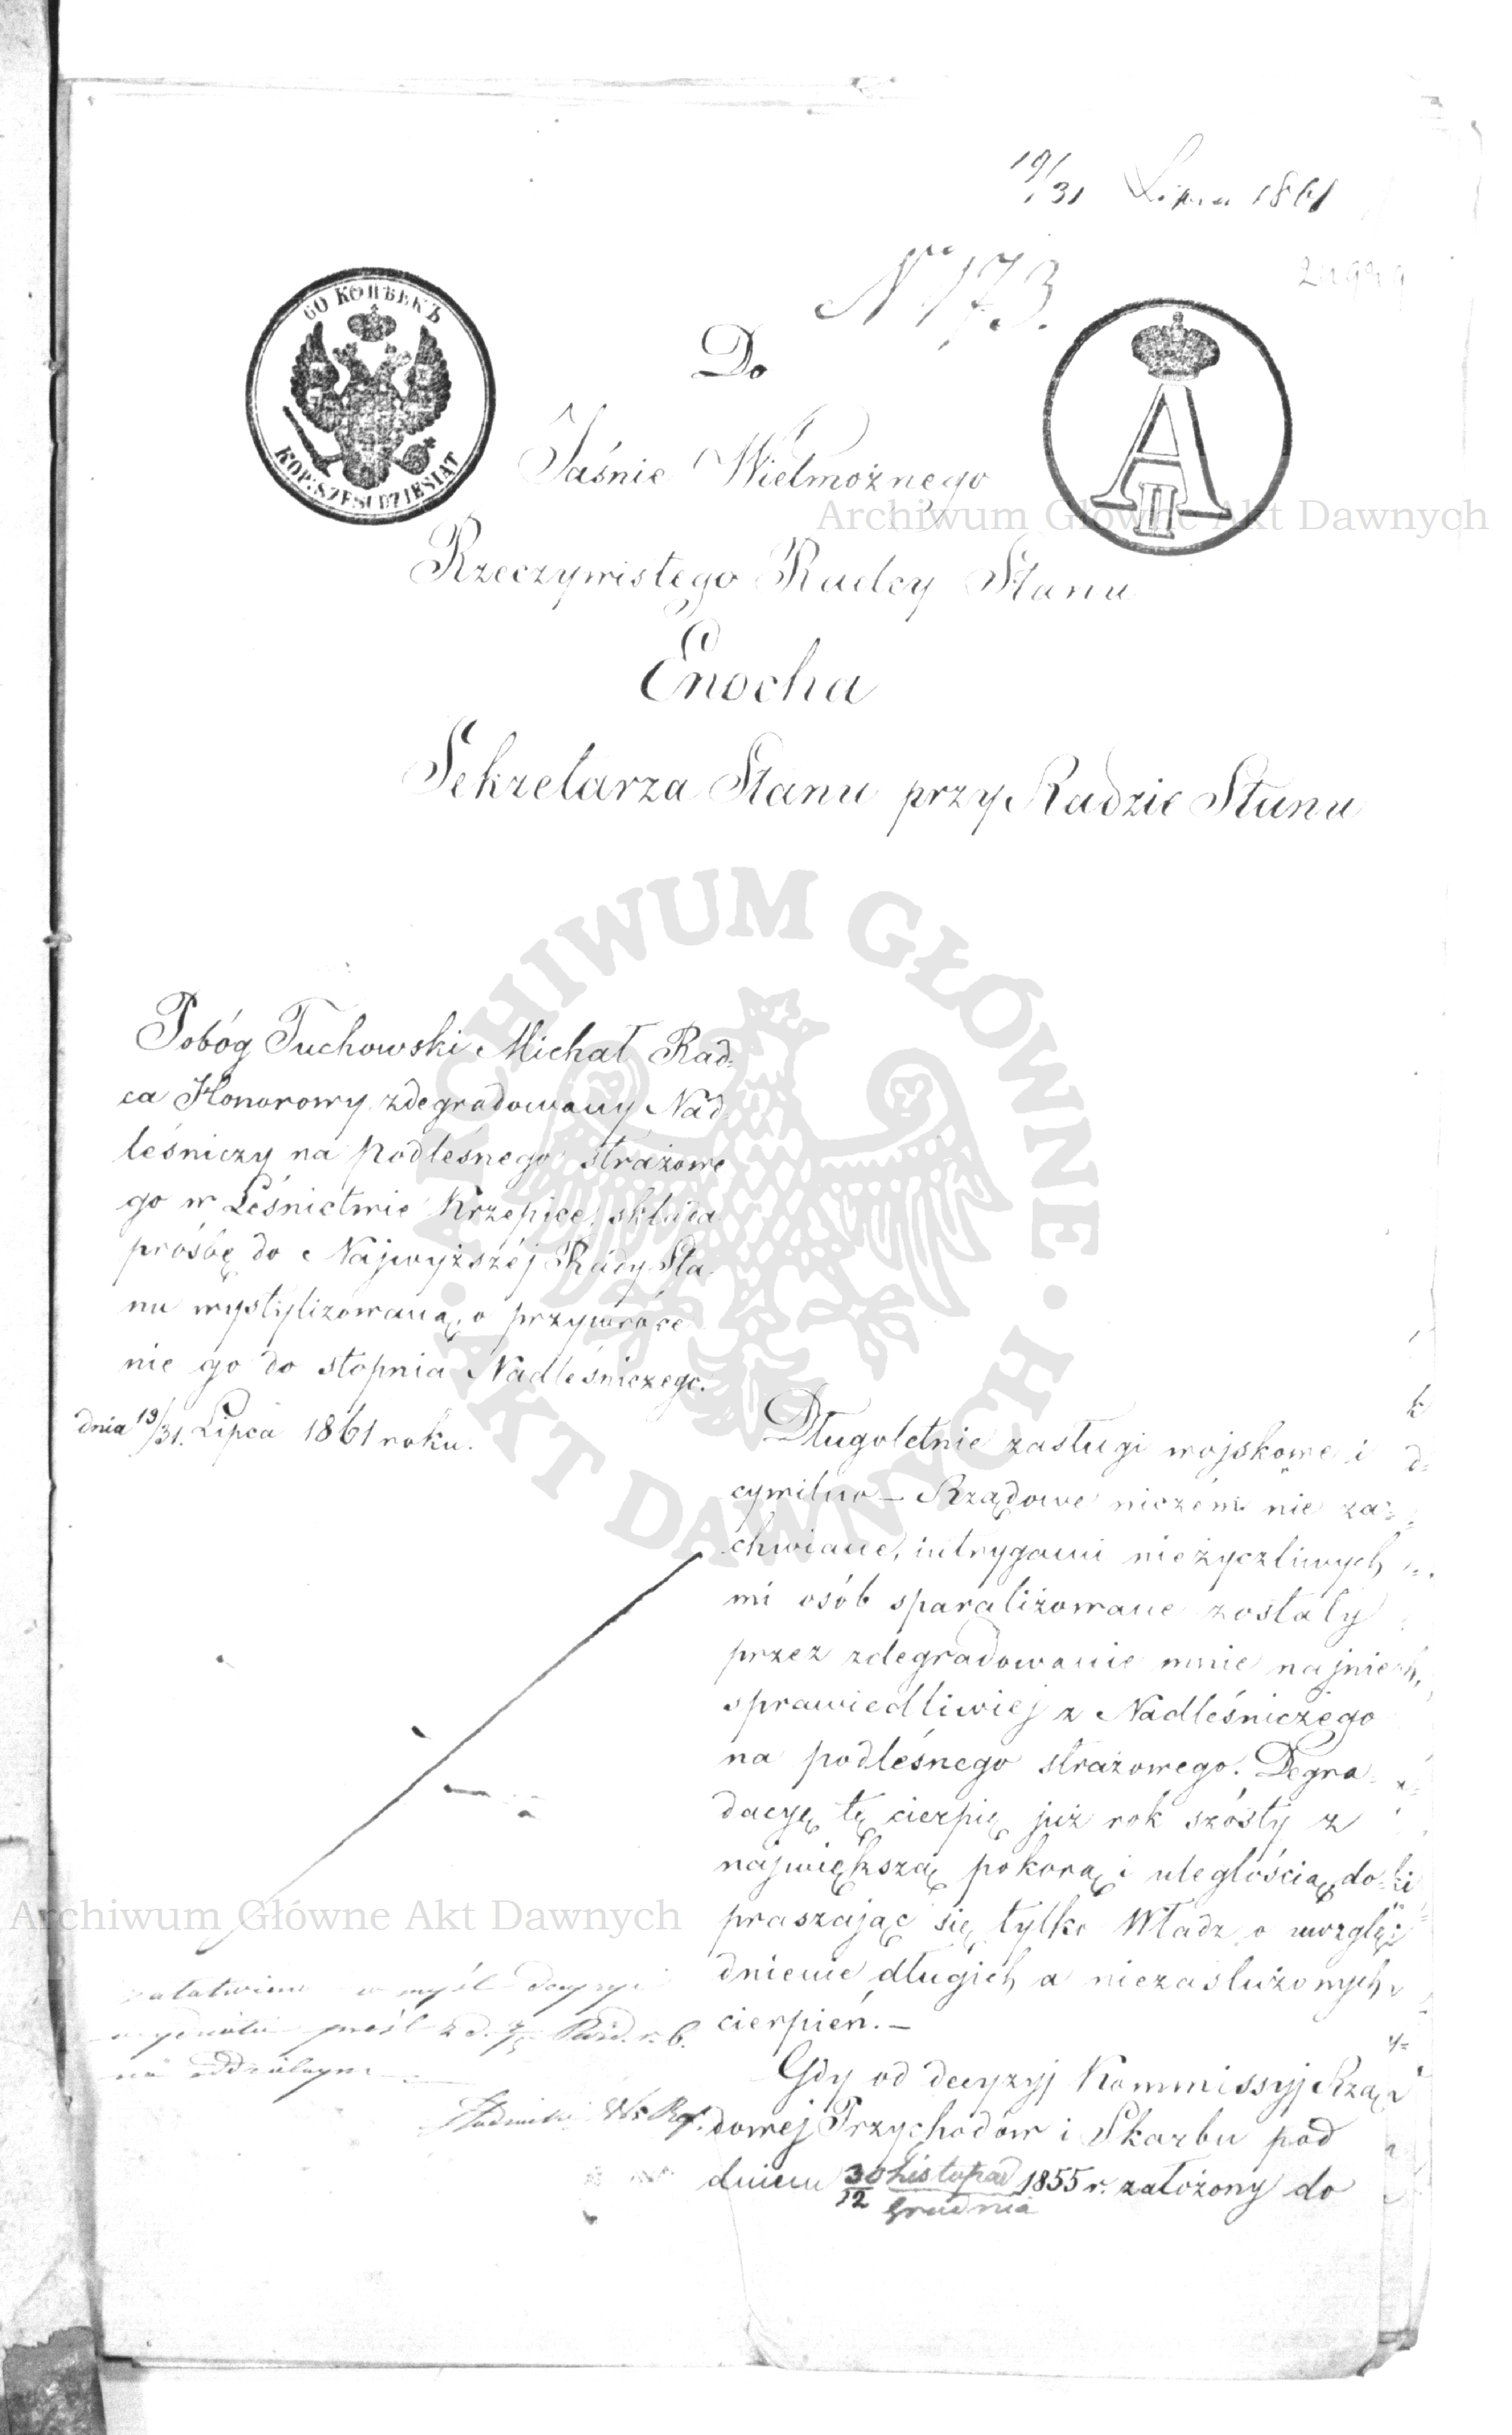 19/31 Lipca 1861
N 173.
60 КОПѢЕКЪ
KOP: SZEŚĆDZIESIĄT
A II
Do
Jaśnie Wielmożnego
Archiwum Główne Akt Dawnych
Rzeczywistego Radcy Stanu
Enocha
Sekretarza Stanu przy Radzie Stanu
ARCHIWUM GŁÓWNE · AKT DAWNYCH ·
Pobóg Tuchowski Michał Rad=
ca Honorowy zdegradowany Nad
leśniczy na podleśnego strażowe
go w Leśnictwie Krzepice, składa
prośbę do Najwyższéj Rady Sta
nu wystylizowaną, o przywróce
nie go do stopnia Nadleśniczego.
dnia 19/31. Lipca 1861 roku.
Długoletnie zasługi wojskowe i
cywilno – Rządowe niczém nie za=
chwiane, intrygami nieżyczliwych
mi osób sparaliżowane zostały
przez zdegradowanie mnie najnie
sprawiedliwiej z Nadleśniczego
na podleśnego strażowego. Degra
dacyę tę cierpię już rok szósty z
największą pokorą i uległością, do
praszając się tylko Władz o uwzglę
dnienie długich a niezasłużonych
cierpień. –
Gdy od decyzyj Kommissyj Rzą
dowej Przychodów i Skarbu pod
dniem 30 Listopad/12 Grudnia 1855 r. założony do
Archiwum Główne Akt Dawnych
w myśl decyzyi
na oddzielnym